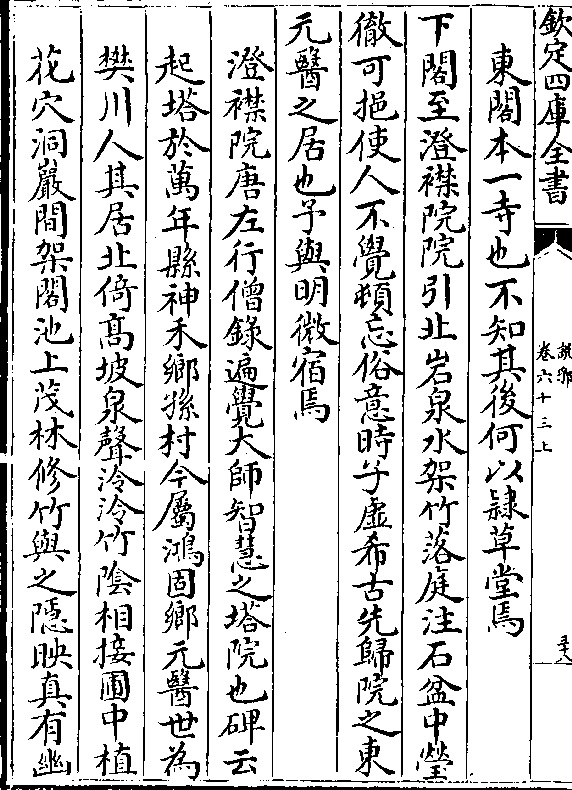 欽定四庫全書
說郛
卷六十三上
三十八
東閣本一寺也不知其後何以隸草堂焉
下閣至澄襟院院引北岩泉水架竹落庭注石盆中瑩
徹可挹使人不覺頓忘俗意時子虛希古先歸院之東
元醫之居也予與明微宿焉
澄襟院唐左行僧錄遍覺大師智慧之塔院也碑云
起塔於萬年縣神禾鄉孫村今屬鴻固鄉元醫世為
樊川人其居北倚高坡泉聲泠泠竹陰相接圃中植
花穴洞巖間架閣池上茂林修竹與之隱映真有幽